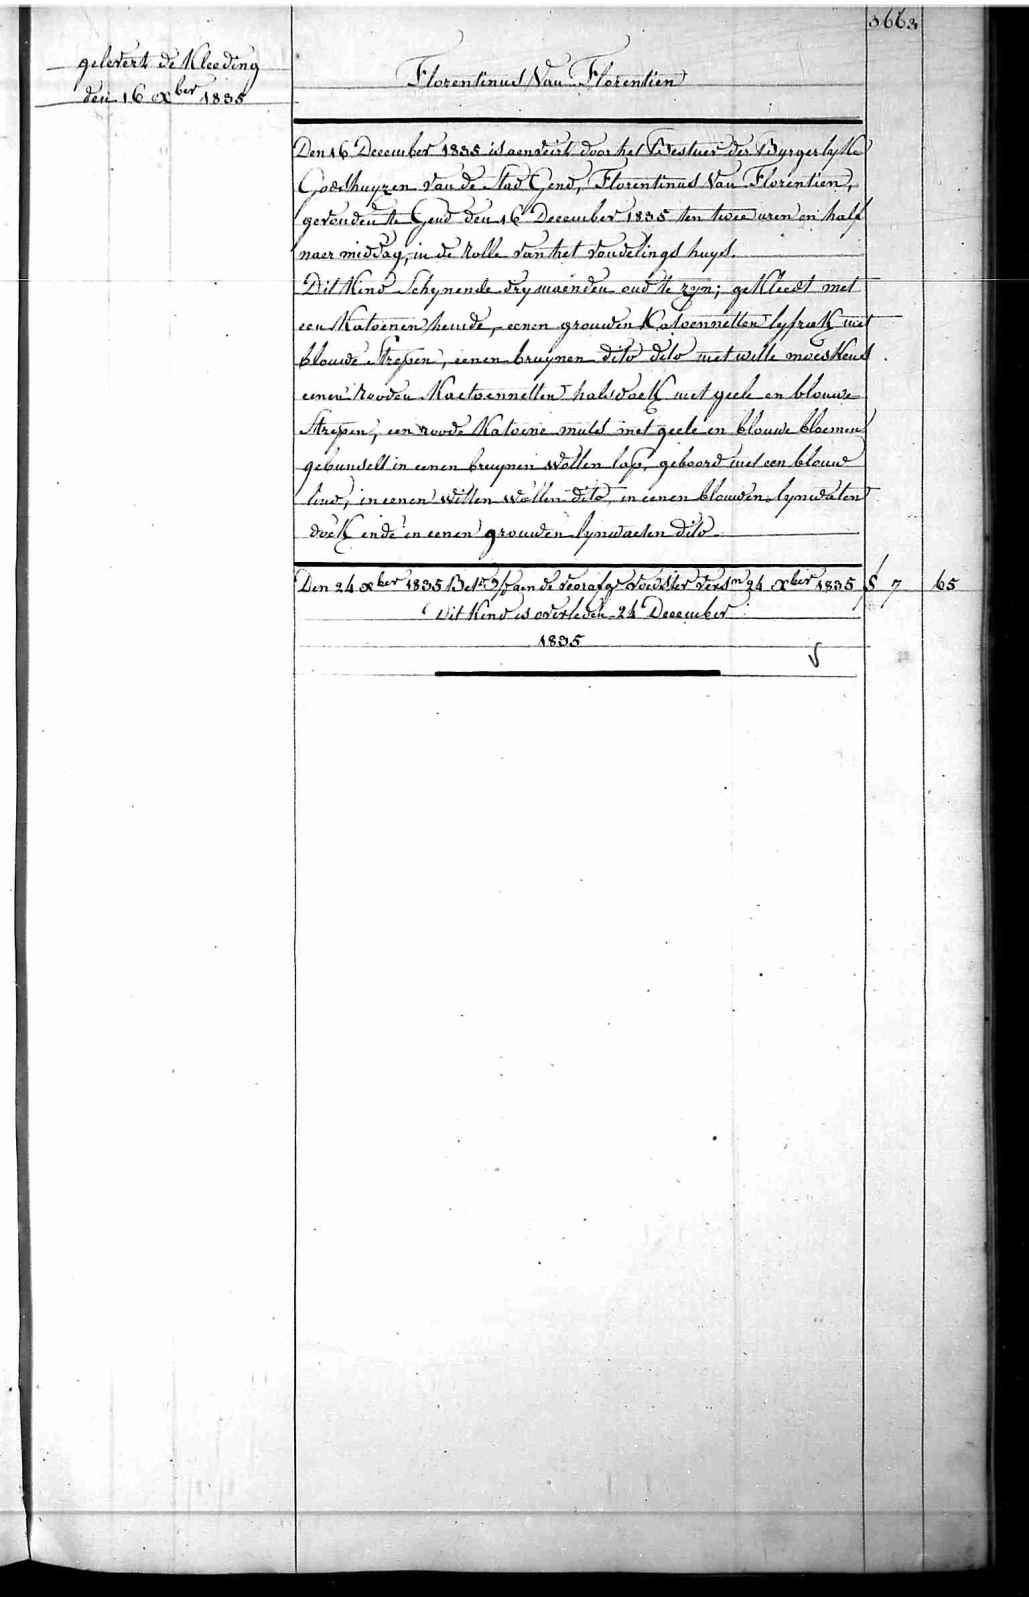 3663
gelevert de Kleeding
den 16 Xber 1835
Florentinus Van Florentien
Den 16 December 1835 is aenveirt door het Bestuer der Burgerlyke
Godshuyzen van de Stad Gend, Florentinus Van Florentien,
gevonden te Gend den 16 December 1835 ten twee uren en half
naer middag, in de Rolle van het vondelings huys.
Dit Kind Schynende dry maenden oud te zyn; gekleed met
een Katoenen hemde, eenen grouwen Katoennetten lyfrok met
blouwe Strepen, eenen bruynen dito dito met witte moeskens
eenen Rooden Kaetoennetten halsdoek met geele en blouwe
Strepen, een roode Katoene muts met geele en blouwe bloemen
gebunselt in eenen bruynen Wollen lap, geboord met een blouw
lind, in eenen Witten Wollen dito, in eenen blouwen lynwaten
doek ende in eenen grouwen lynwaeten dito
Den 24 Xber 1835 Bet. aen de voedster 24 Xber 1835 f 7 65
Dit Kind is overleden 24 December
1835